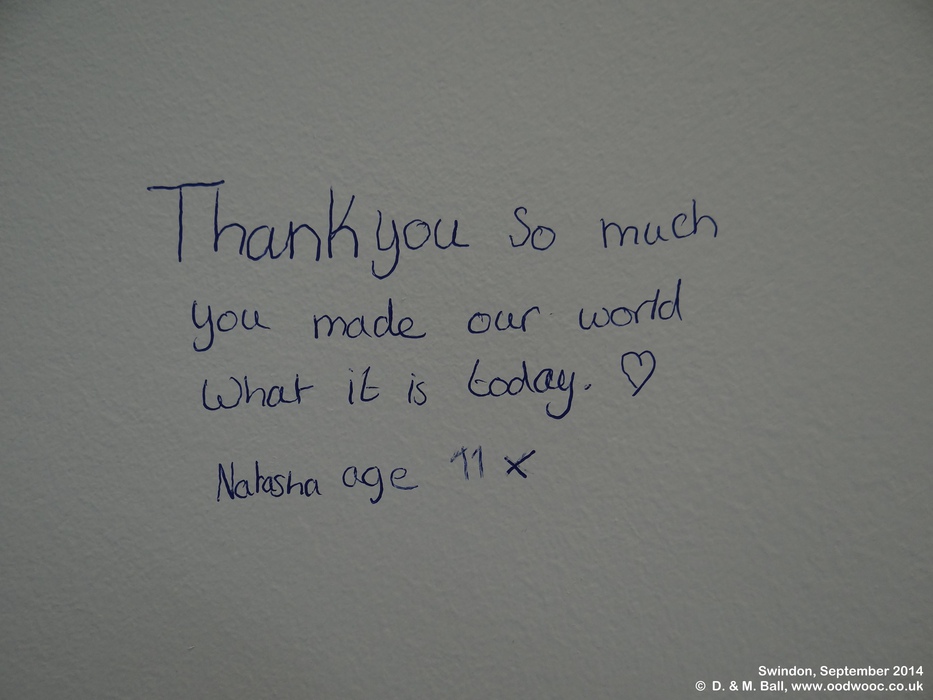 Thank you so much
you made our world
What it is today. ♡
Natasha age 11 x
Swindon, September 2014
© D. & M. Ball, www.oodwooc.co.uk